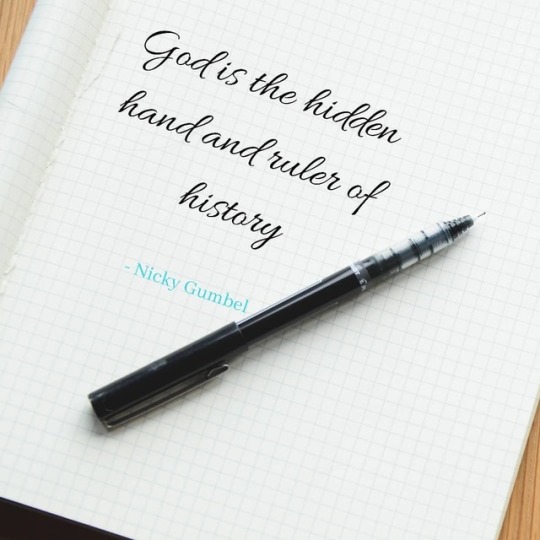 God is the hidden
hand and ruler of
history
- Nicky Gumbel